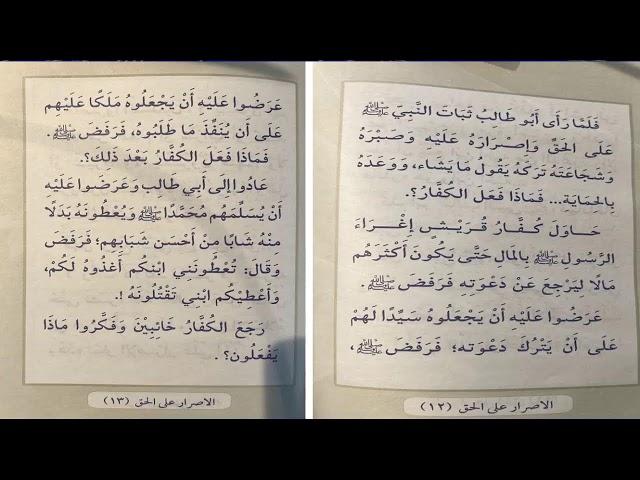 فَلَمَّا رَأَى أَبُو طَالِبٍ ثَبَاتَ النَّبِيِّ ﷺ
عَلَى الحَقِّ وَإِصْرَارَهُ عَلَيْهِ وَصَبْرَهُ
وَشَجَاعَتَهُ تَرَكَهُ يَقُولُ مَا يَشَاء، وَوَعَدَهُ
بِالحِمَايَةِ... فَمَاذَا فَعَلَ الكُفَّارُ؟.
حَاوَلَ كُفَّارُ قُرَيْشٍ إِغْرَاءَ
الرَّسُولِ ﷺ بِالمَالِ حَتَّى يَكُونَ أَكْثَرَهُم
مَالًا لِيَرْجِعَ عَنْ دَعْوَتِهِ فَرَفَضَ ﷺ.
عَرَضُوا عَلَيْهِ أَنْ يَجْعَلُوهُ سَيِّدًا لَهُمْ
عَلَى أَنْ يَتْرُكَ دَعْوَتَه؛ فَرَفَضَ ﷺ،
الاصرار على الحق (١٢)
عَرَضُوا عَلَيْهِ أَنْ يَجْعَلُوهُ مَلِكًا عَلَيْهِم
عَلَى أَن يُنَفِّذَ مَا طَلَبُوهُ، فَرَفَضَ ﷺ.
فَمَاذَا فَعَلَ الكُفَّارُ بَعْدَ ذَلِكَ؟.
عَادُوا إِلَى أَبِي طَالِبٍ وَعَرَضُوا عَلَيْه
أَنْ يُسَلِّمَهُم مُحَمَّدًا ﷺ وَيُعْطُونَهُ بَدَلًا
مِنْهُ شَابًا مِنْ أَحْسَنِ شَبَابِهِم؛ فَرَفَضَ
وَقَالَ: تُعْطُونَنِي ابْنَكُم أَغْذُوهُ لَكُمْ،
وَأُعْطِيكُم ابْنِي تَقْتُلُونَهُ !.
رَجَعَ الكُفَّارُ خَائِبِينَ وَفَكَّرُوا مَاذَا
يَفْعَلُون؟ .
الاصرار على الحق (١٣)